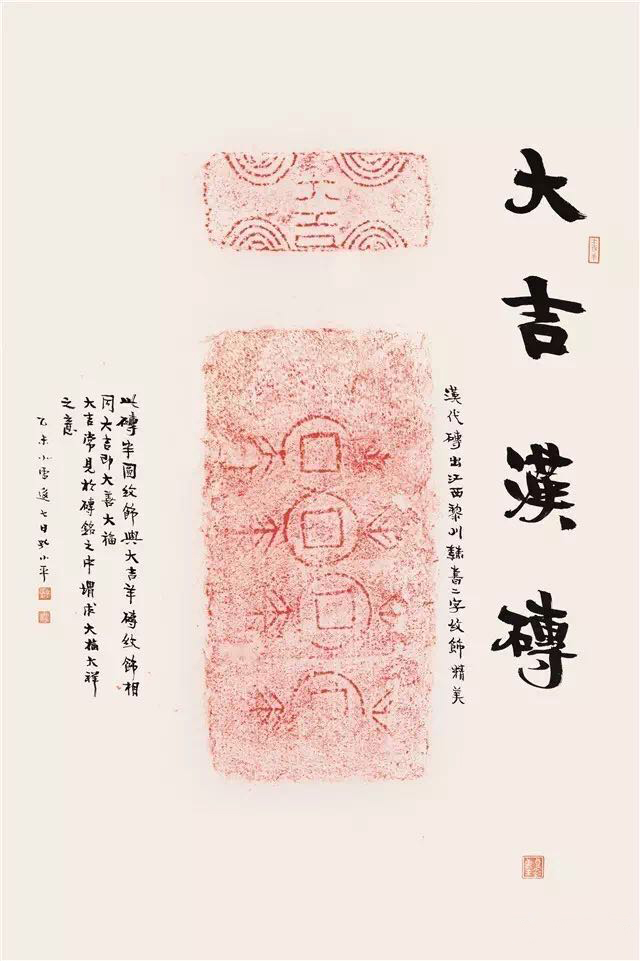 大吉漢磚
漢代磚出江西黎川隸書二字紋飾精美
大吉
此磚半圓紋飾與大吉羊磚紋飾相
同大吉即大善大福
大吉常見於磚銘之中謂求大福大祥
之意
乙未小雪後七日孔小平